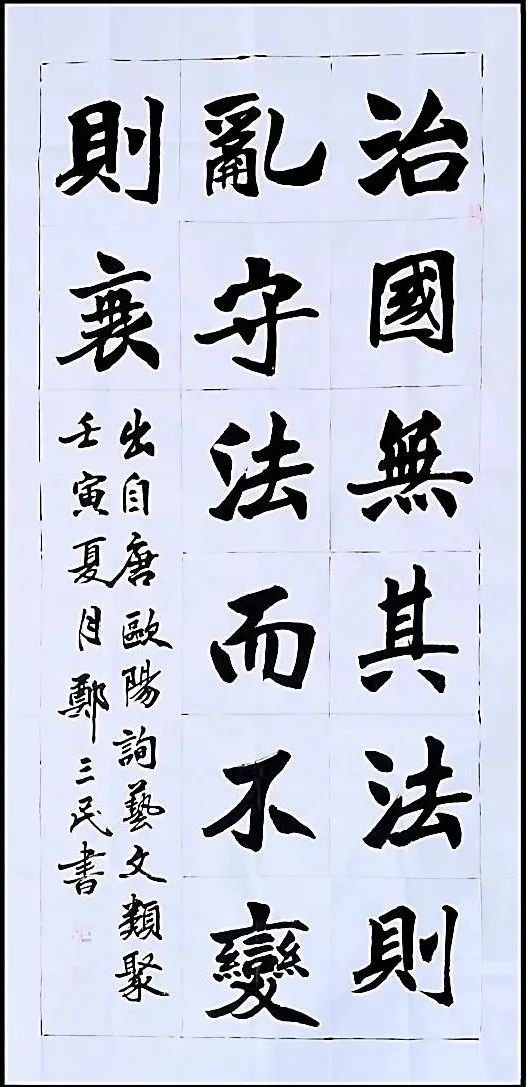 治國無其法則
亂守法而不變
則衰
出自唐歐陽詢藝文類聚
壬寅夏月鄭三民書